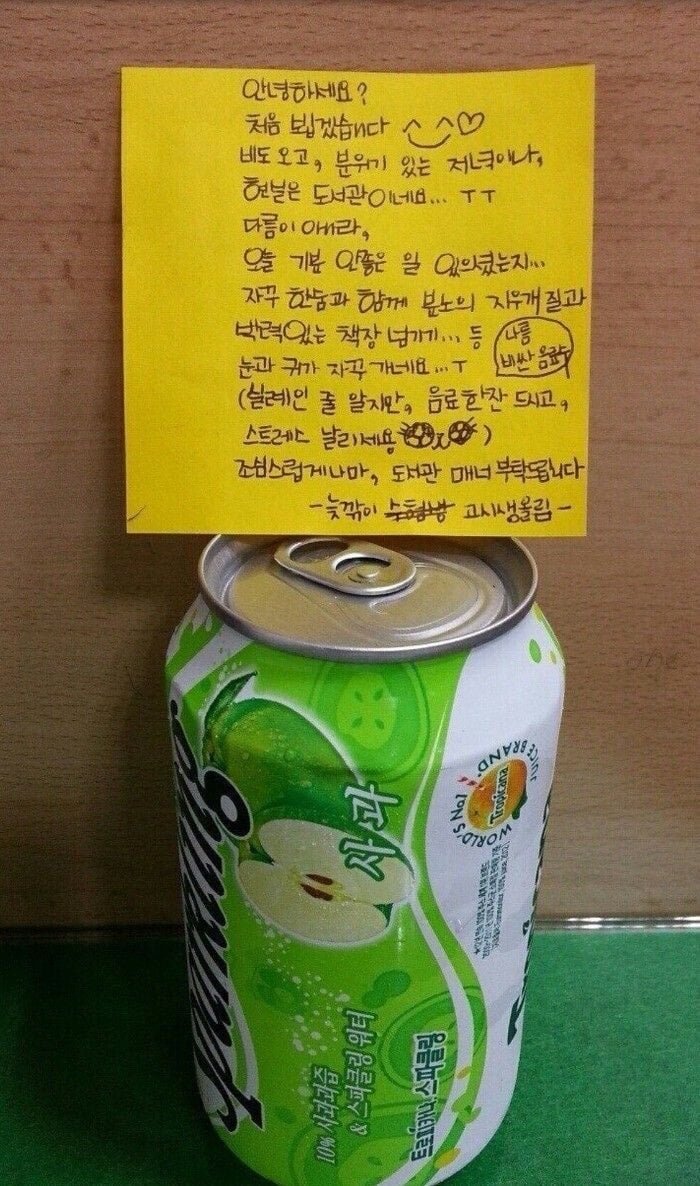 안녕하세요?
처음 뵙겠습니다 ^‿^♡
비도 오고, 분위기 있는 저녁이나,
현실은 도서관이네요... ㅜㅜ
다름이 아니라,
오늘 기분 안좋은 일 있으셨는지...
자꾸 한숨과 함께 분노의 지우개질과
박력있는 책장 넘기기... 등
나름
비싼 음료
눈과 귀가 자꾸 가네요...ㅜ
(실례인 줄 알지만, 음료한잔 드시고,
스트레스 날리세용)
조심스럽게나마, 도서관 매너 부탁드립니다
-늦깎이 수험생 고시생올림-
Sparkling
사과
WORLD'S No.1 JUICE BRAND
Tropicana
10% 사과과즙
& 스파클링 워터
트로피카나 스파클링